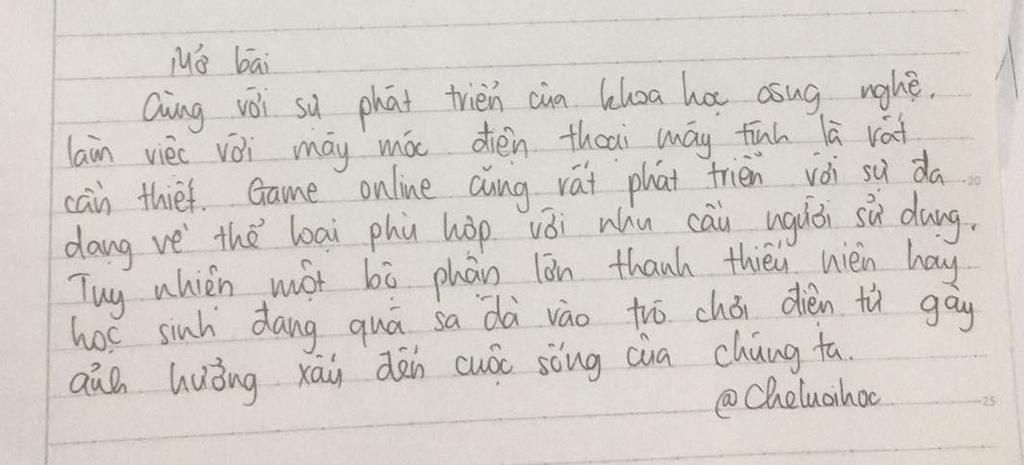 Mở bài
Cùng với sự phát triển của khoa học công nghệ.
làm việc với máy móc điện thoại máy tính là rất
cần thiết. Game online cũng rất phát triển với sự đa
dạng về thể loại phù hợp với nhu cầu người sử dụng.
Tuy nhiên một bộ phận lớn thanh thiếu niên hay
học sinh đang quá sa đà vào trò chơi điện tử gây
ảnh hưởng xấu đến cuộc sống của chúng ta.
@Cheluoihoc